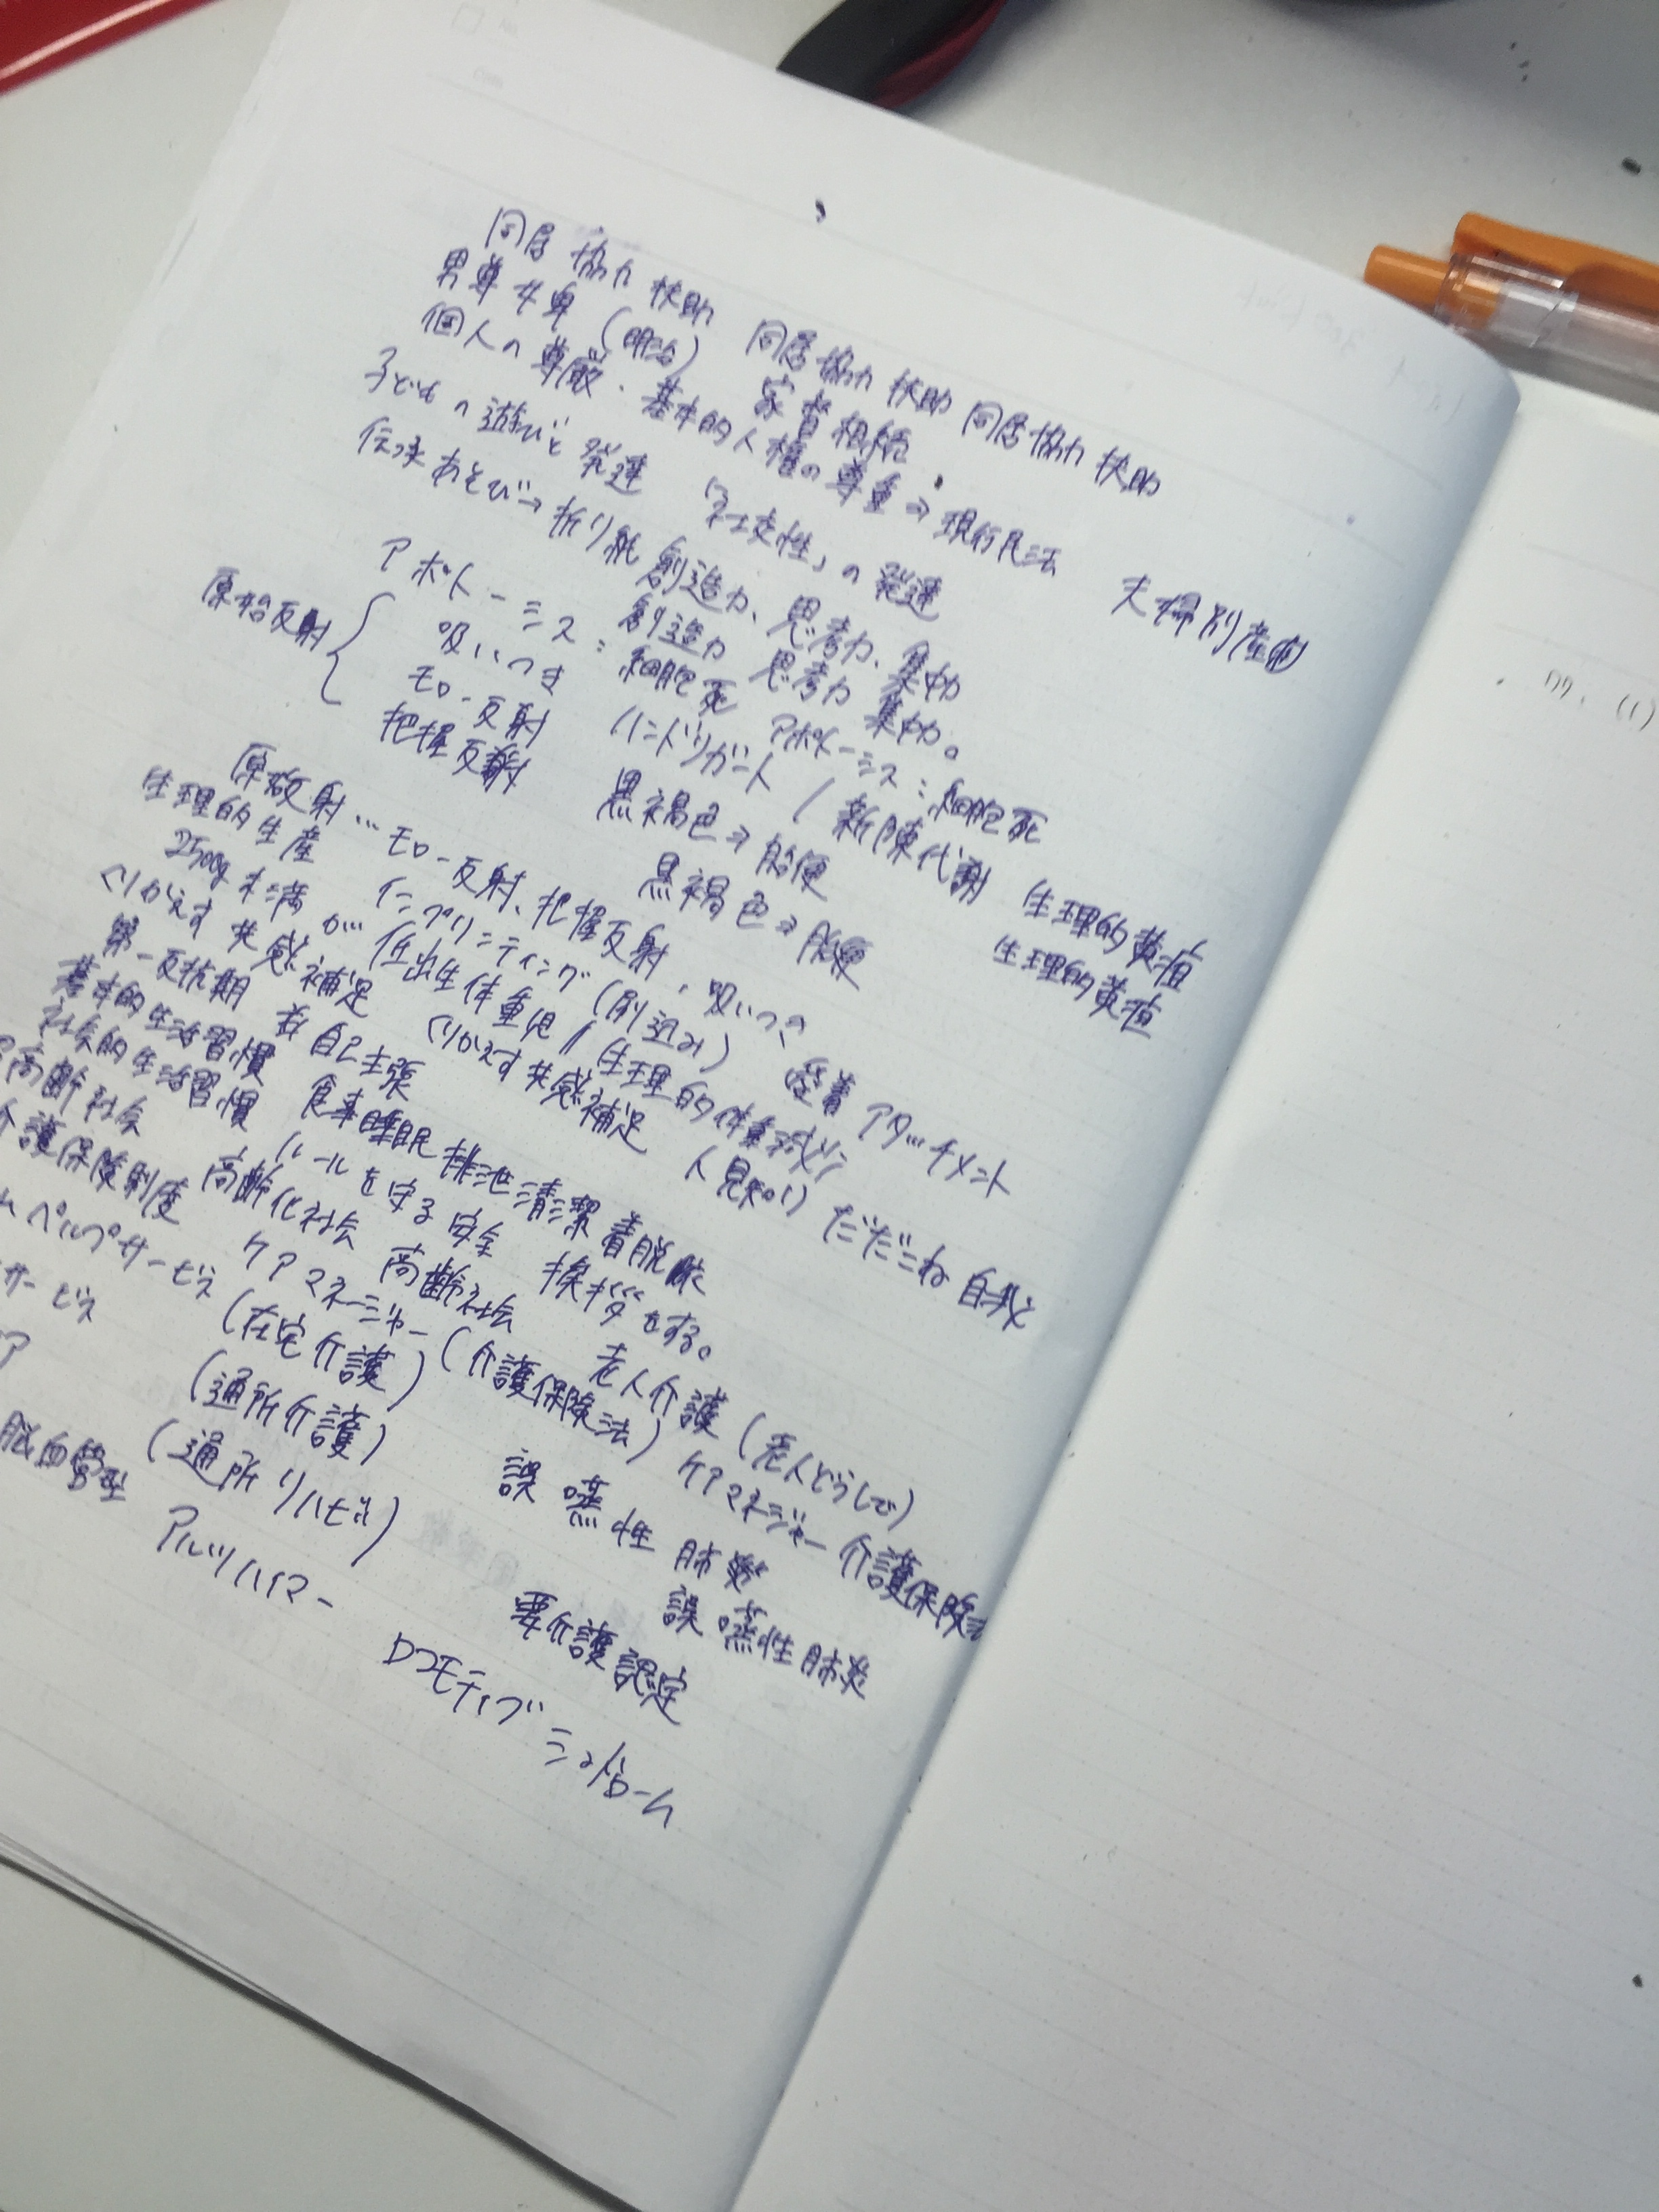 同居 協力 扶助 同居 協力 扶助 同居 協力 扶助
男尊女卑 (明治) 家督相続
個人の尊厳・基本的人権の尊重⇒現行民法 夫婦別産制
子どもの遊びと発達 「社交性」の発達
伝承あそび→折り紙 創造力、思考力、集中力
創造力 思考力 集中力。
アポトーシス:細胞死 アポトーシス:細胞死
原始反射
吸いつき
モロー反射 ハンドリガード / 新陳代謝 生理的黄疸
把握反射 黒褐色⇒胎便 生理的黄疸
黒褐色⇒胎便
原始反射…モロー反射、把握反射、吸いつき
生理的生産 インプリンティング(刷込み) 愛着 アタッチメント
2500g未満 が… 低出生体重児 // 生理的体重減少
くりかえす 共感 補足 くりかえす 共感 補足 人見知り だだこね 自我
第一反抗期 自己主張
基本的生活習慣 食事 睡眠 排泄 清潔 着脱衣
社会的生活習慣 ルールを守る 安全 挨拶をする。
高齢社会 高齢化社会 高齢社会 老人介護(老人どうしで)
介護保険制度 ケアマネージャー(介護保険法) ケアマネージャー 介護保険法
ムヘルプサービス (在宅介護)
サービス (通所介護) 誤嚥性肺炎 誤嚥性肺炎
ア (通所リハビリ)
脳血管型 アルツハイマー 要介護認定
ロコモティブシンドローム